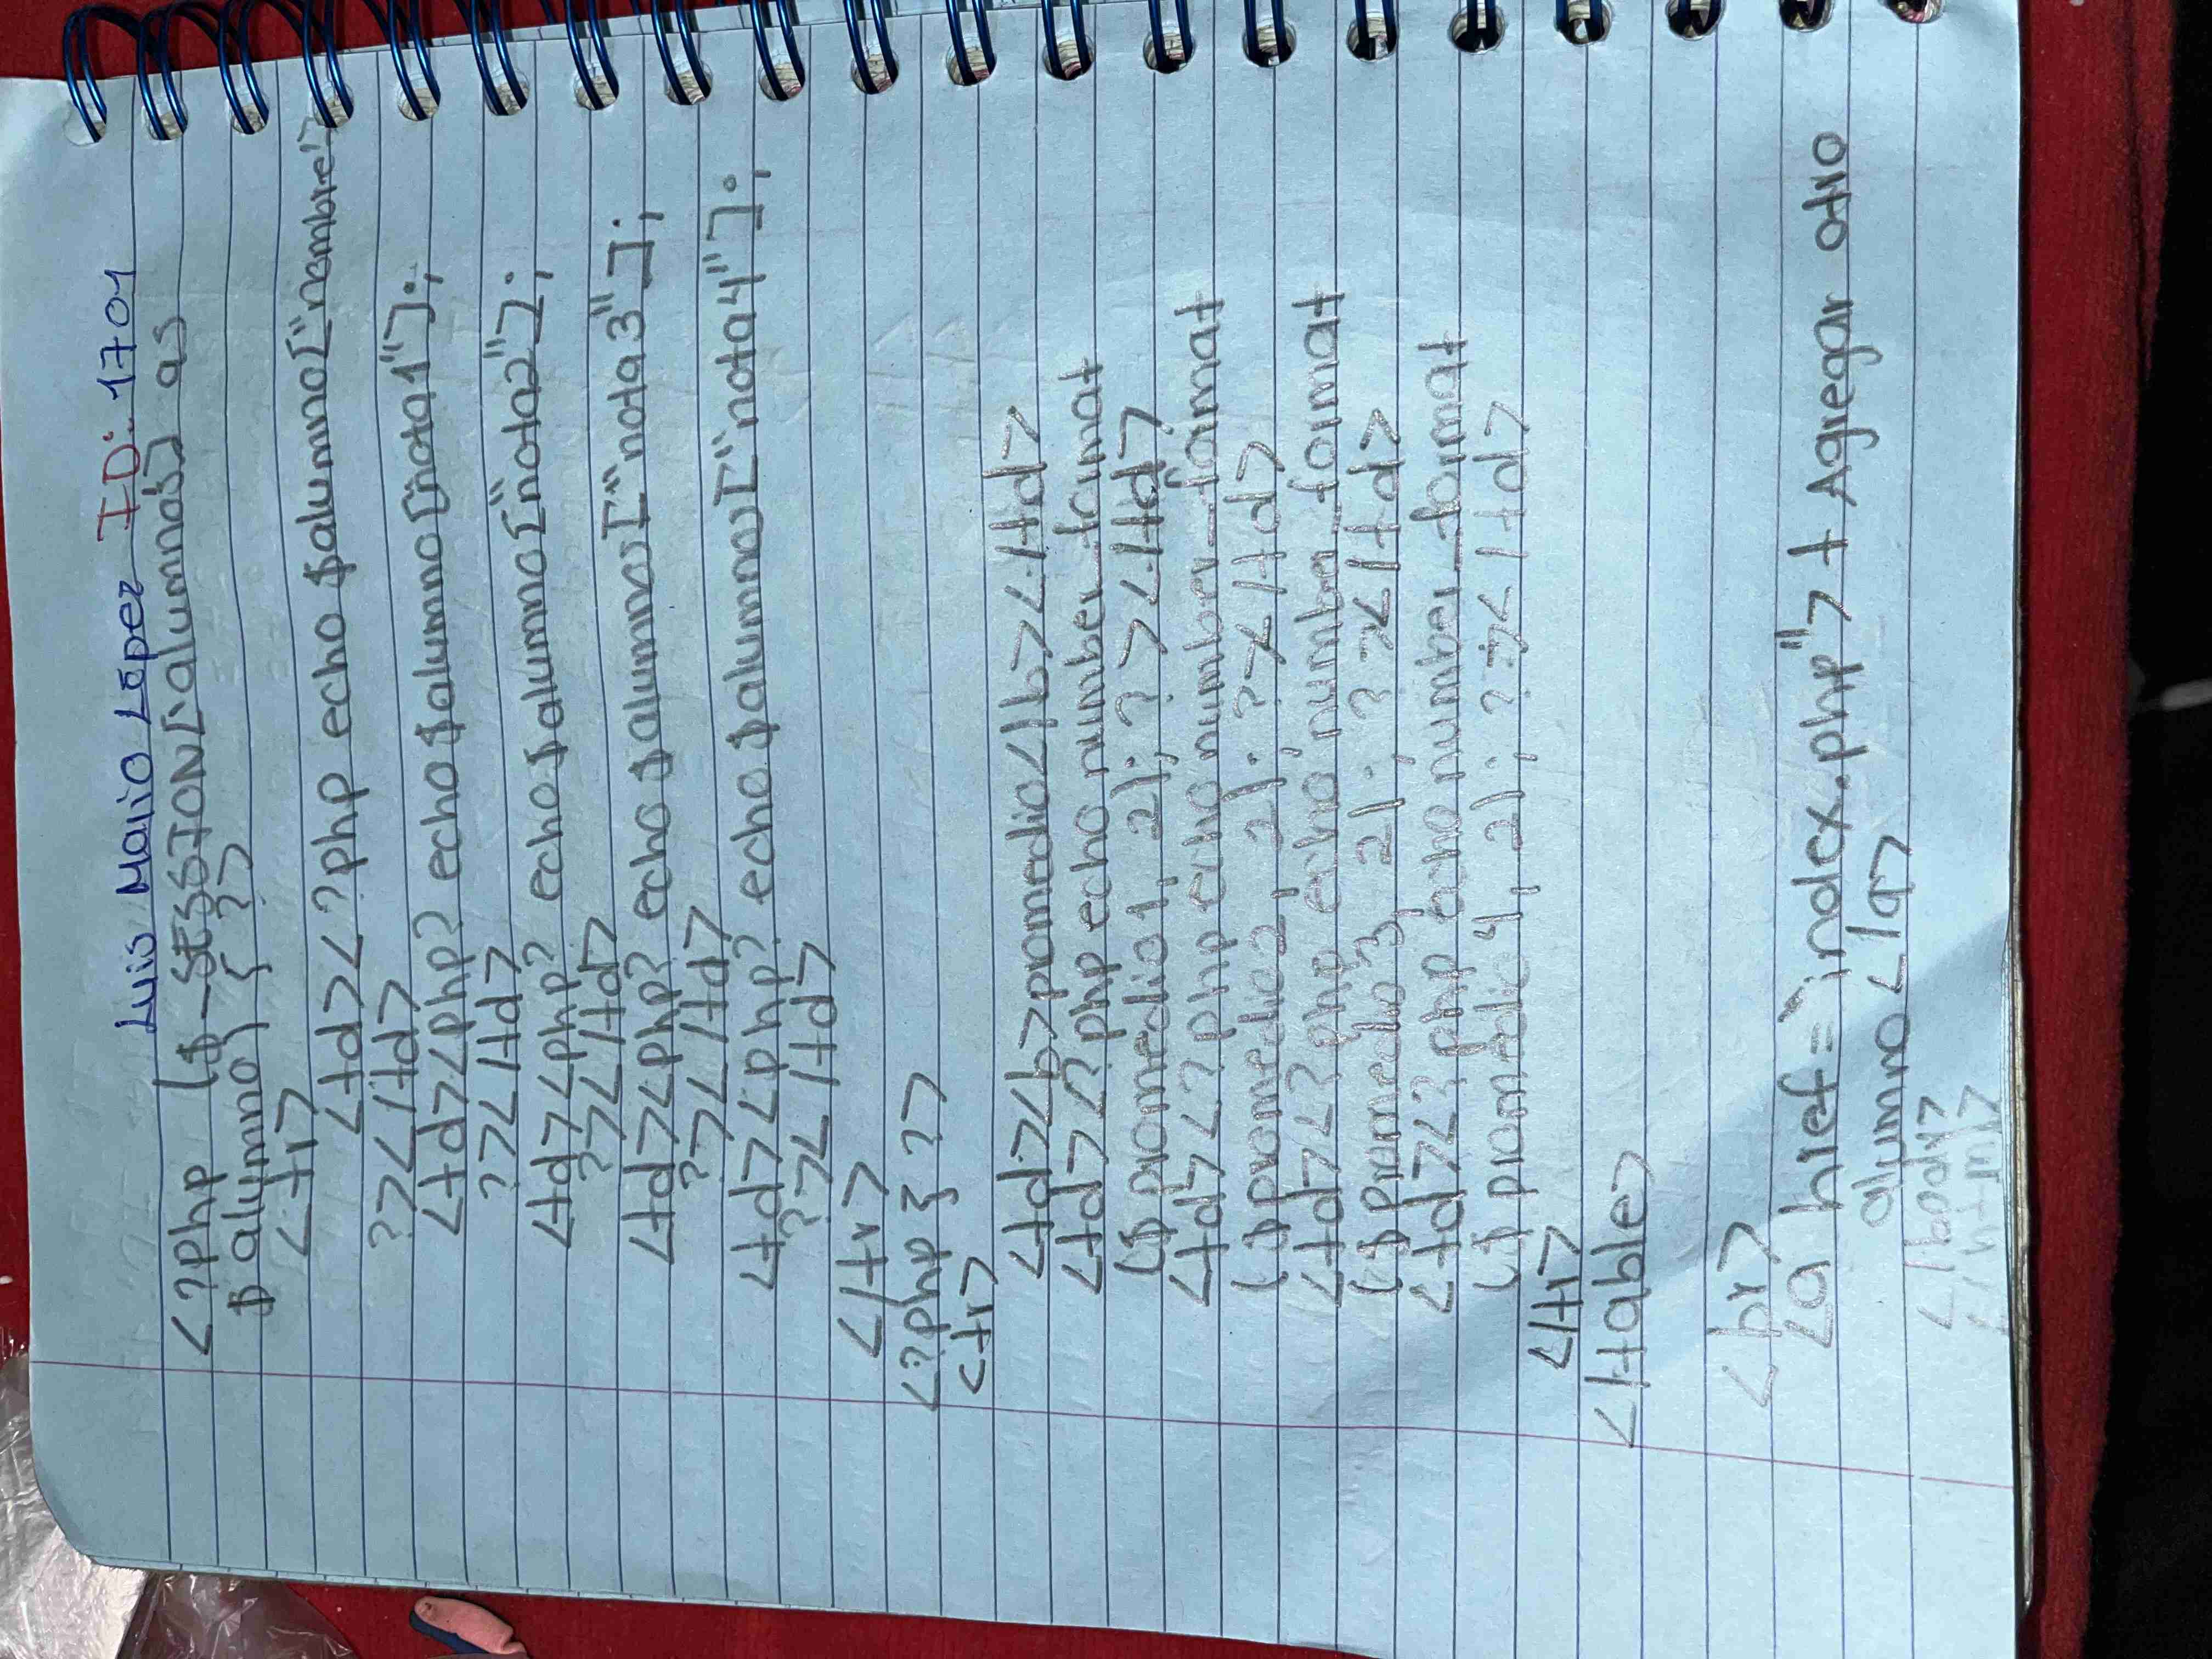 Luis Mario Lopez ID: 1701
<?php ($_SESSION['alumnos'] as
$alumno) { ?>
<tr>
<td><?php echo $alumno["nombre"]
?></td>
<td><php? echo $alumno["nota1"];
?></td>
<td><php? echo $alumno["nota2"];
?></td>
<td><php? echo $alumno["nota3"];
?></td>
<td><php? echo $alumno["nota4"];
?></td>
</tr>
<?php } ?>
<tr>
<td><b>promedio</b></td>
<td><?php echo number_format
($promedio1, 2); ?></td>
<td><?php echo number_format
($promedio2, 2); ?></td>
<td><?php echo number_format
($promedio3, 2); ?></td>
<td><?php echo number_format
($promedio4, 2); ?></td>
</tr>
</table>
<br>
<a href="index.php"> + Agregar otro
alumno</a>
</body>
</html>